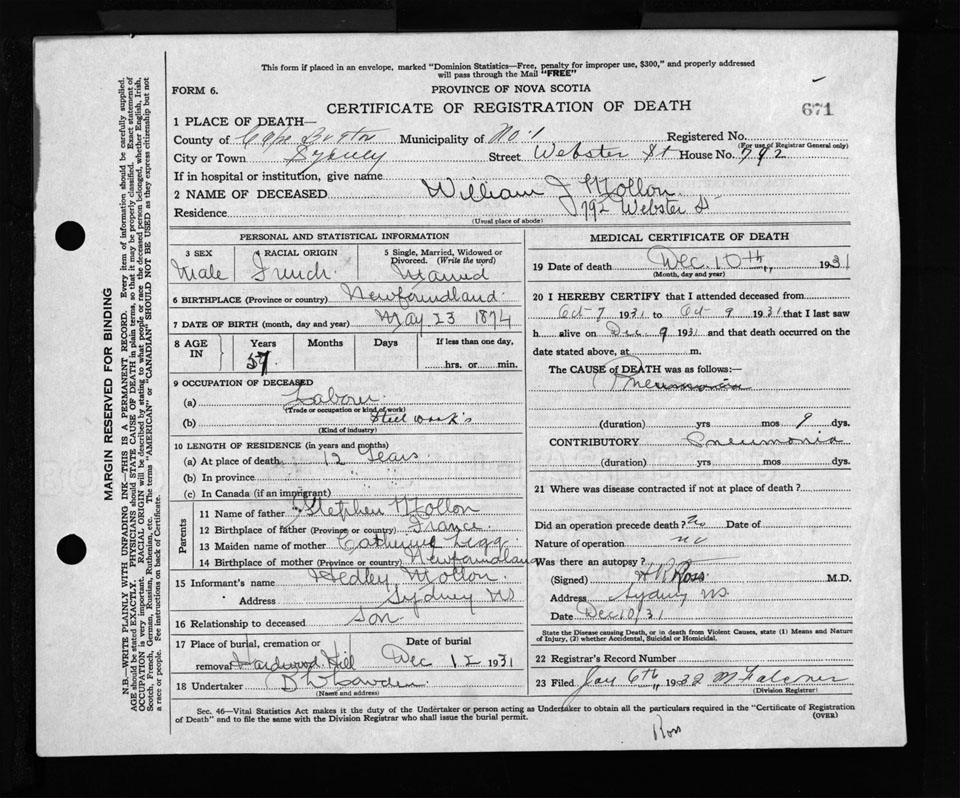 This form if placed in an envelope, marked "Dominion Statistics—Free, penalty for improper use, $300," and properly addressed
will pass through the Mail "FREE"
FORM 6.
PROVINCE OF NOVA SCOTIA
CERTIFICATE OF REGISTRATION OF DEATH
671
1 PLACE OF DEATH—
County of Cape Breton Municipality of No. 1 Registered No.
(For use of Registrar General only)
City or Town Sydney Street Webster St House No. 792
If in hospital or institution, give name
2 NAME OF DECEASED William J Mollon
Residence 792 Webster St
(Usual place of abode)
PERSONAL AND STATISTICAL INFORMATION
3 SEX
Male
4 RACIAL ORIGIN
French
5 Single, Married, Widowed or
Divorced. (Write the word)
Married
6 BIRTHPLACE (Province or country) Newfoundland
7 DATE OF BIRTH (month, day and year) May 23 1874
8 AGE IN
Years Months Days If less than one day,
57 hrs. or min.
9 OCCUPATION OF DECEASED
(a) Labour
(Trade or occupation or kind of work)
(b) Steel work's
(Kind of industry)
10 LENGTH OF RESIDENCE (in years and months)
(a) At place of death 12 Years
(b) In province " "
(c) In Canada (if an immigrant)
Parents
11 Name of father Stephen Mollon
12 Birthplace of father (Province or country) France
13 Maiden name of mother Catherine Legg
14 Birthplace of mother (Province or country) Newfoundland
15 Informant's name Hedley Mollon
Address Sydney NS
16 Relationship to deceased Son
17 Place of burial, cremation or Date of burial
removal Hardwood Hill Dec 12 1931
18 Undertaker
(Name and address)
MEDICAL CERTIFICATE OF DEATH
19 Date of death Dec. 10th, 1931
(Month, day and year)
20 I HEREBY CERTIFY that I attended deceased from
Oct 7 1931 to Oct 9 1931 that I last saw
h alive on Dec 9 1931 and that death occurred on the
date stated above, at m.
The CAUSE of DEATH was as follows:—
Pneumonia
(duration) yrs mos 9 dys.
CONTRIBUTORY Pneumonia
(duration) yrs mos dys.
21 Where was disease contracted if not at place of death?
Did an operation precede death? No Date of
Nature of operation no
Was there an autopsy?
(Signed) Ross M.D.
Address Sydney NS.
Date Dec 10, 31
State the Disease causing Death, or in death from Violent Causes, state (1) Means and Nature
of Injury, (2) whether Accidental, Suicidal or Homicidal.
22 Registrar's Record Number
23 Filed Jan 6th, 1932 M Falconer
(Division Registrar)
Sec. 46—Vital Statistics Act makes it the duty of the Undertaker or person acting as Undertaker to obtain all the particulars required in the "Certificate of Registration
of Death" and to file the same with the Division Registrar who shall issue the burial permit.
(OVER)
Ross
MARGIN RESERVED FOR BINDING
N.B.—WRITE PLAINLY WITH UNFADING INK—THIS IS A PERMANENT RECORD. Every item of information should be carefully supplied.
AGE should be stated EXACTLY. PHYSICIANS should STATE CAUSE OF DEATH in plain terms, so that it may be properly classified. Exact statement of
OCCUPATION is very important. RACIAL ORIGIN will be described by stating to what people or race the deceased person belonged, whether English, Irish,
Scotch, French, German, Russian, Ruthenian, etc. The terms "AMERICAN" or "CANADIAN" SHOULD NOT BE USED as they express citizenship but not
a race or people. See instructions on back of Certificate.